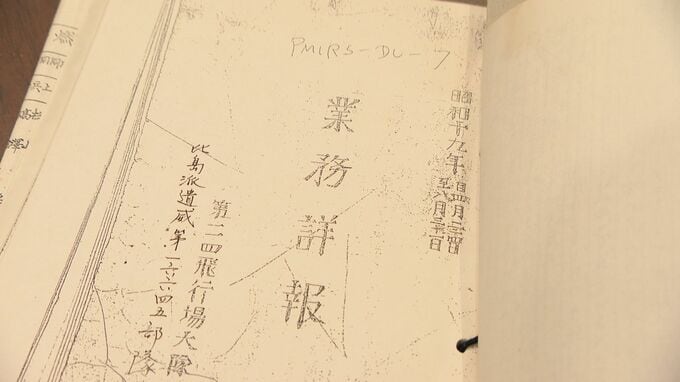 PMIRS-DU-7
昭和十九年
自四月
至八月
業務詳報
第二四飛行場大隊
比島派遣威第一六六四五部隊